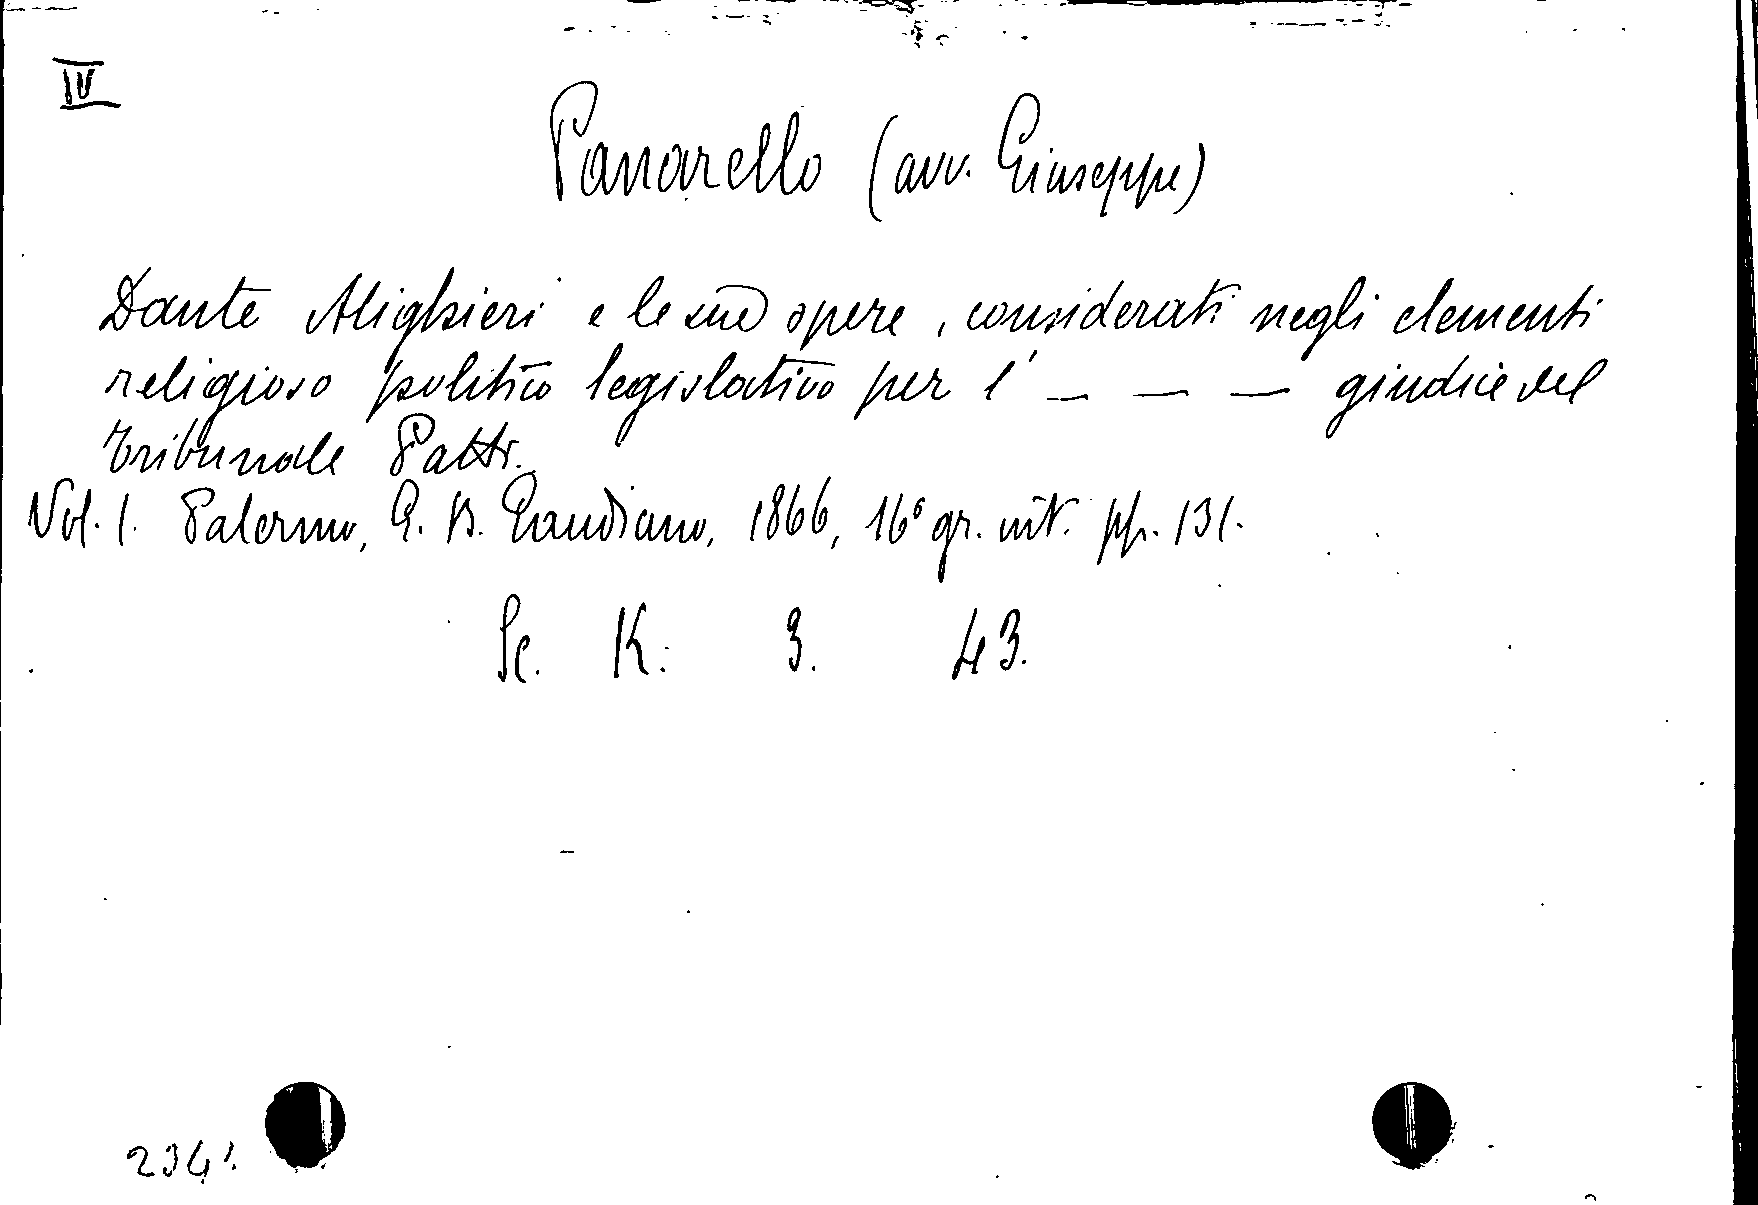 IV
Panarello (avv. Giuseppe)
Dante Alighieri e le sue opere, considerati negli elementi
religioso politico legislativo per l' _ _ _ giudice del
tribunale Patti.
Vol. 1. Palermo, G. B. Gaudiano, 1866, 16° gr. int. pp. 131.
Sc. K. 3. 43.